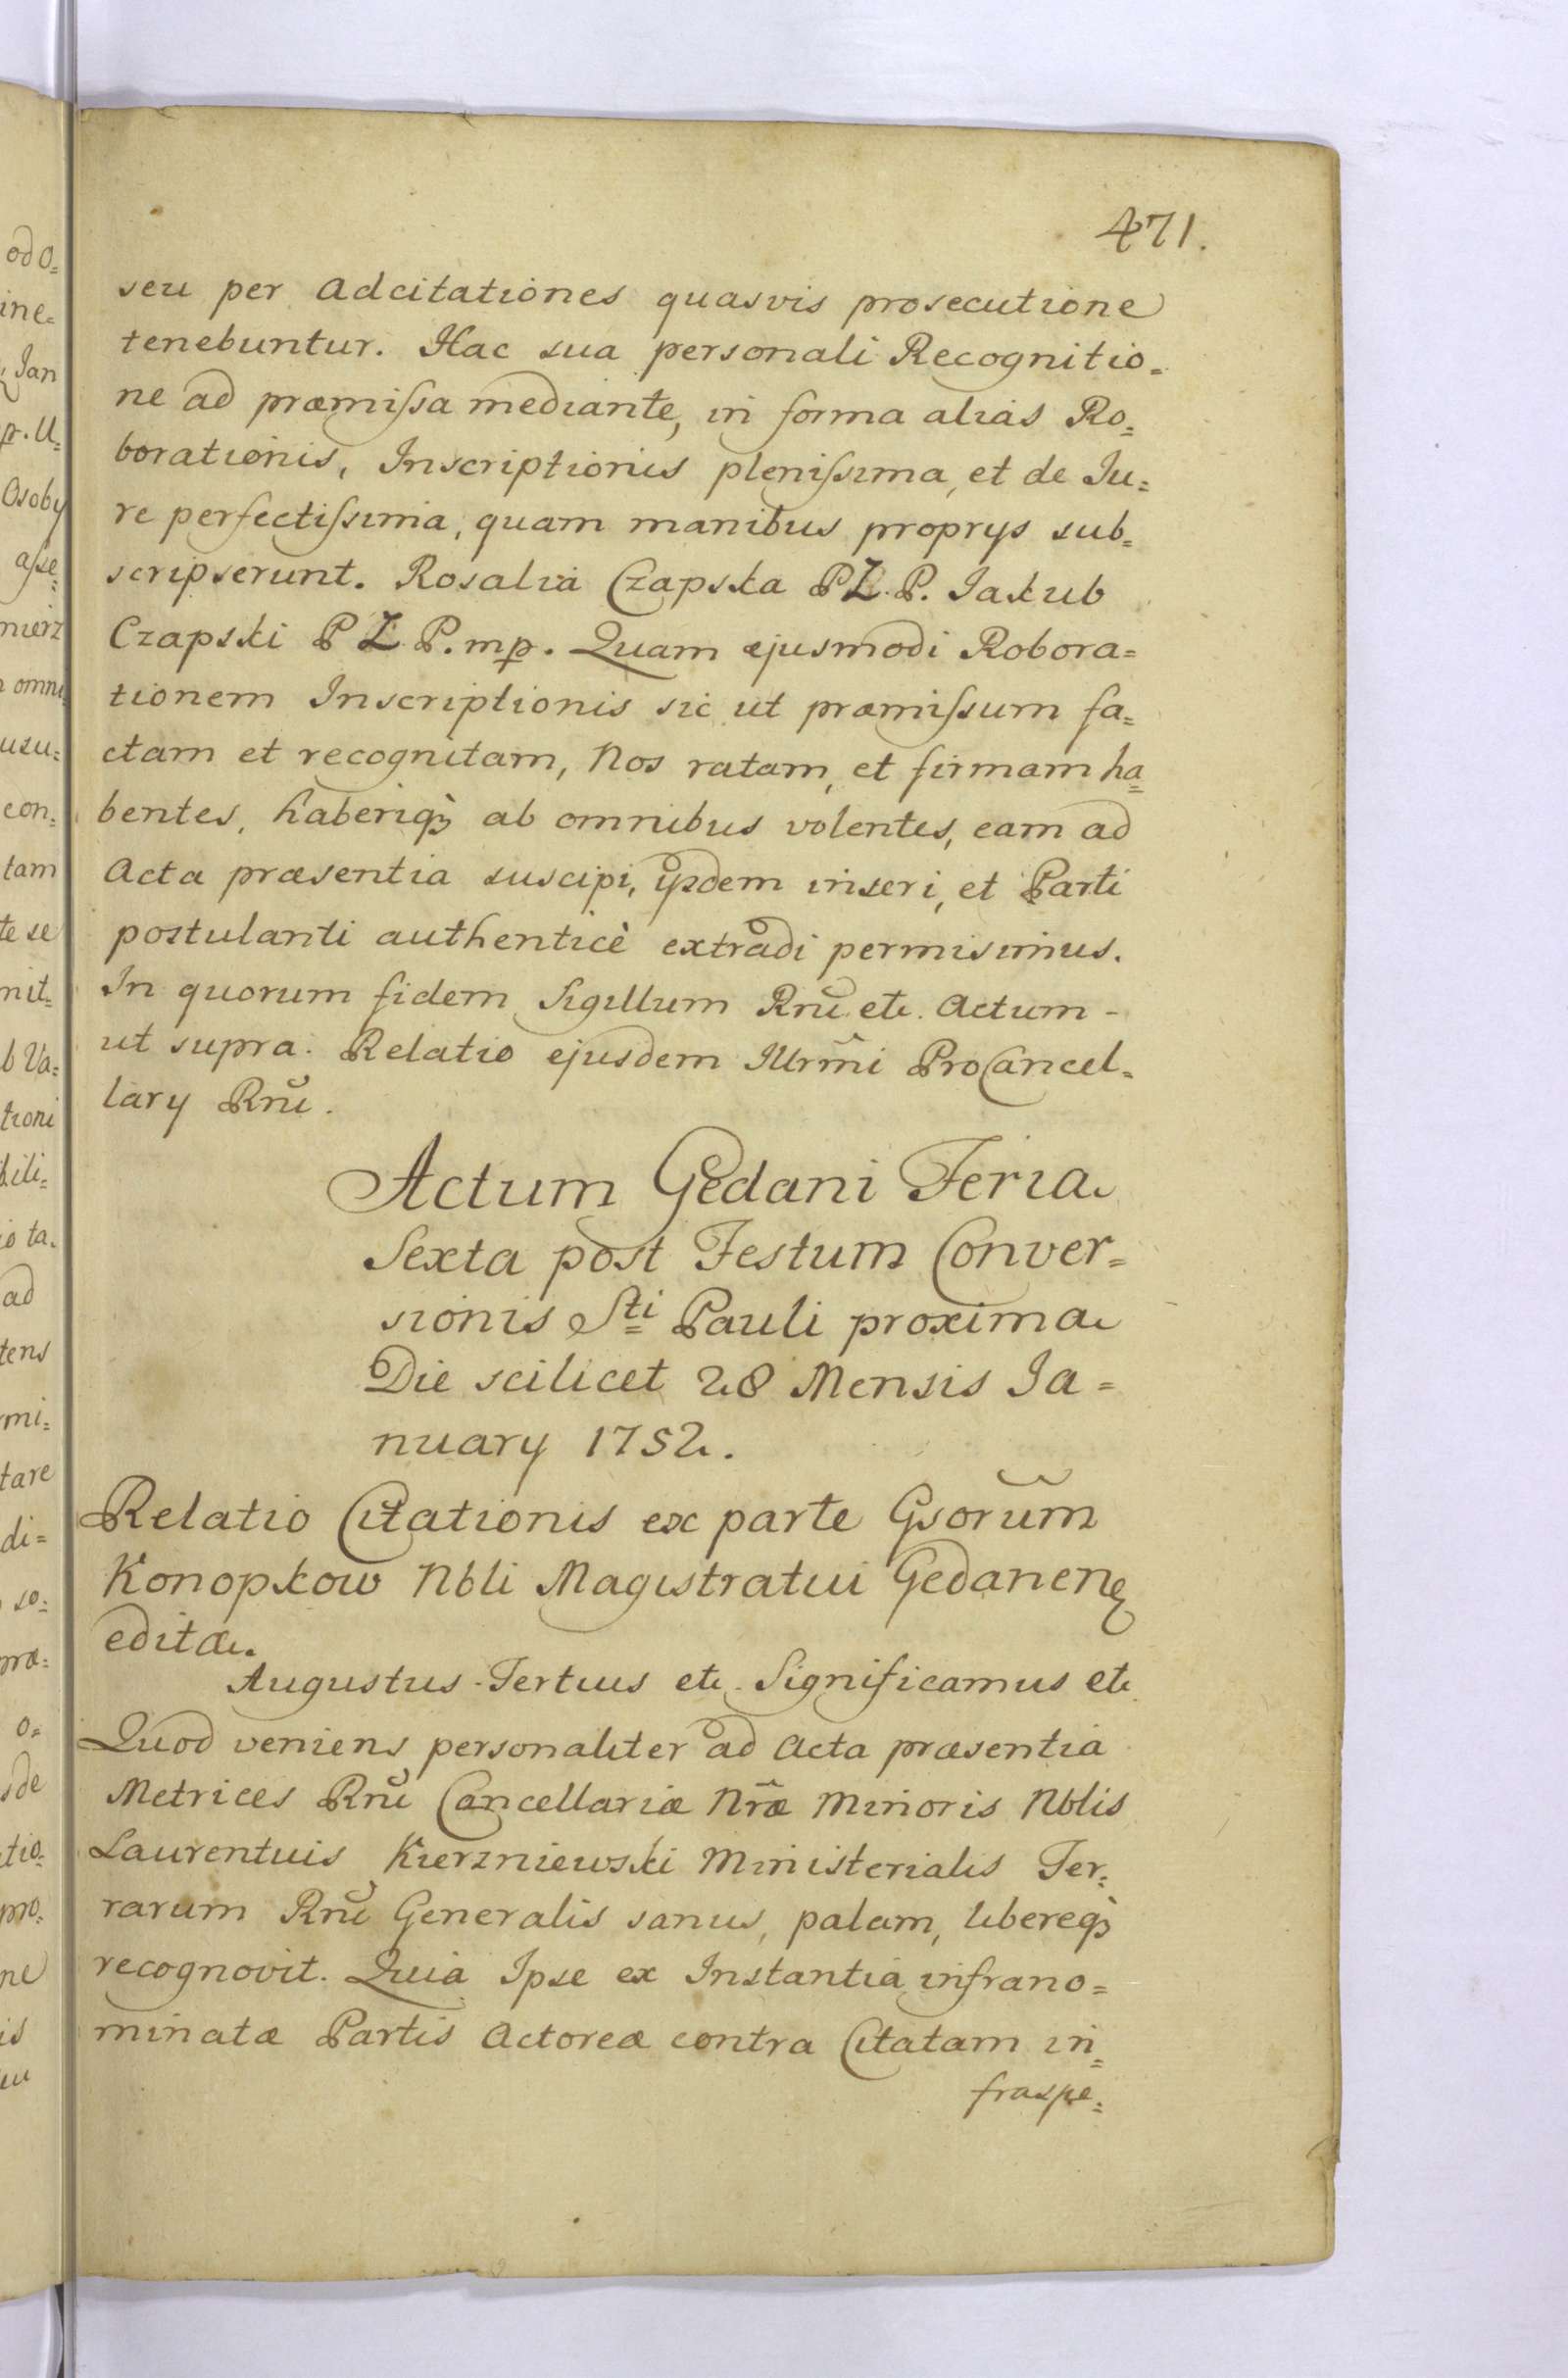 471.
seu per adcitationes quasvis prosecutione
tenebuntur. Hac sua personali Recognitio=
ne ad præmiſsa mediante, in forma alias Ro=
borationis, Inscriptionis pleniſsima, et de Iu=
re perfectiſsima, quam manibus proprys sub=
scripserunt. Rosalia Czapska PZ.P. Jakub
Czapski P Z P. mp. Quam ejusmodi Robora=
tionem Inscriptionis sic ut præmiſsum fa=
ctam et recognitam, Nos ratam, et firmam ha=
bentes, haberiq̃ ab omnibus volentes, eam ad
Acta præsentia suscipi, ijsdem inseri, et Parti
postulanti authenticè extradi permisimus.
In quorum fidem Sigillum Rnũ etc. Actum -
ut supra. Relatio ejusdem Illrm̃i ProCancel=
lary Rnũ.
Actum Gedani Feria
Sexta post Festum Conver=
sionis Sti Pauli proxima
Die scilicet 28 Mensis Ja=
nuary 1752.
Relatio Citationis ex parte Gsorũm
Konopkow Nbli Magistratui Gedanen
editæ.
Augustus Tertius etc. Significamus etc
Quod veniens personaliter ad Acta præsentia
Metrices Rnũ Cancellariæ Nræ̃ Minoris Nblis
Laurentius Kierzniewski Ministerialis Ter=
rarum Rnũ Generalis sanus, palam, libereq̃
recognovit. Quia Ipse ex Instantia infrano=
minatæ Partis Actoreæ contra Citatam in=
fraspe=